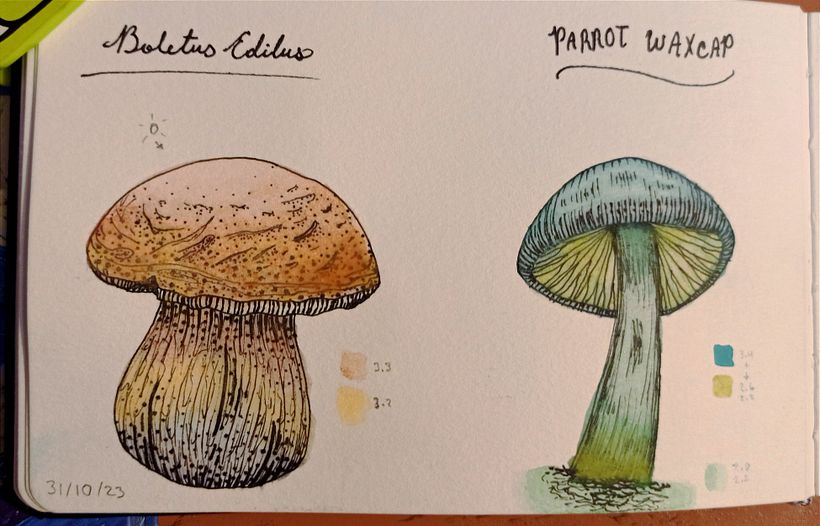 Boletus Edilus
PARROT WAXCAP
3.3
3.2
31/10/23